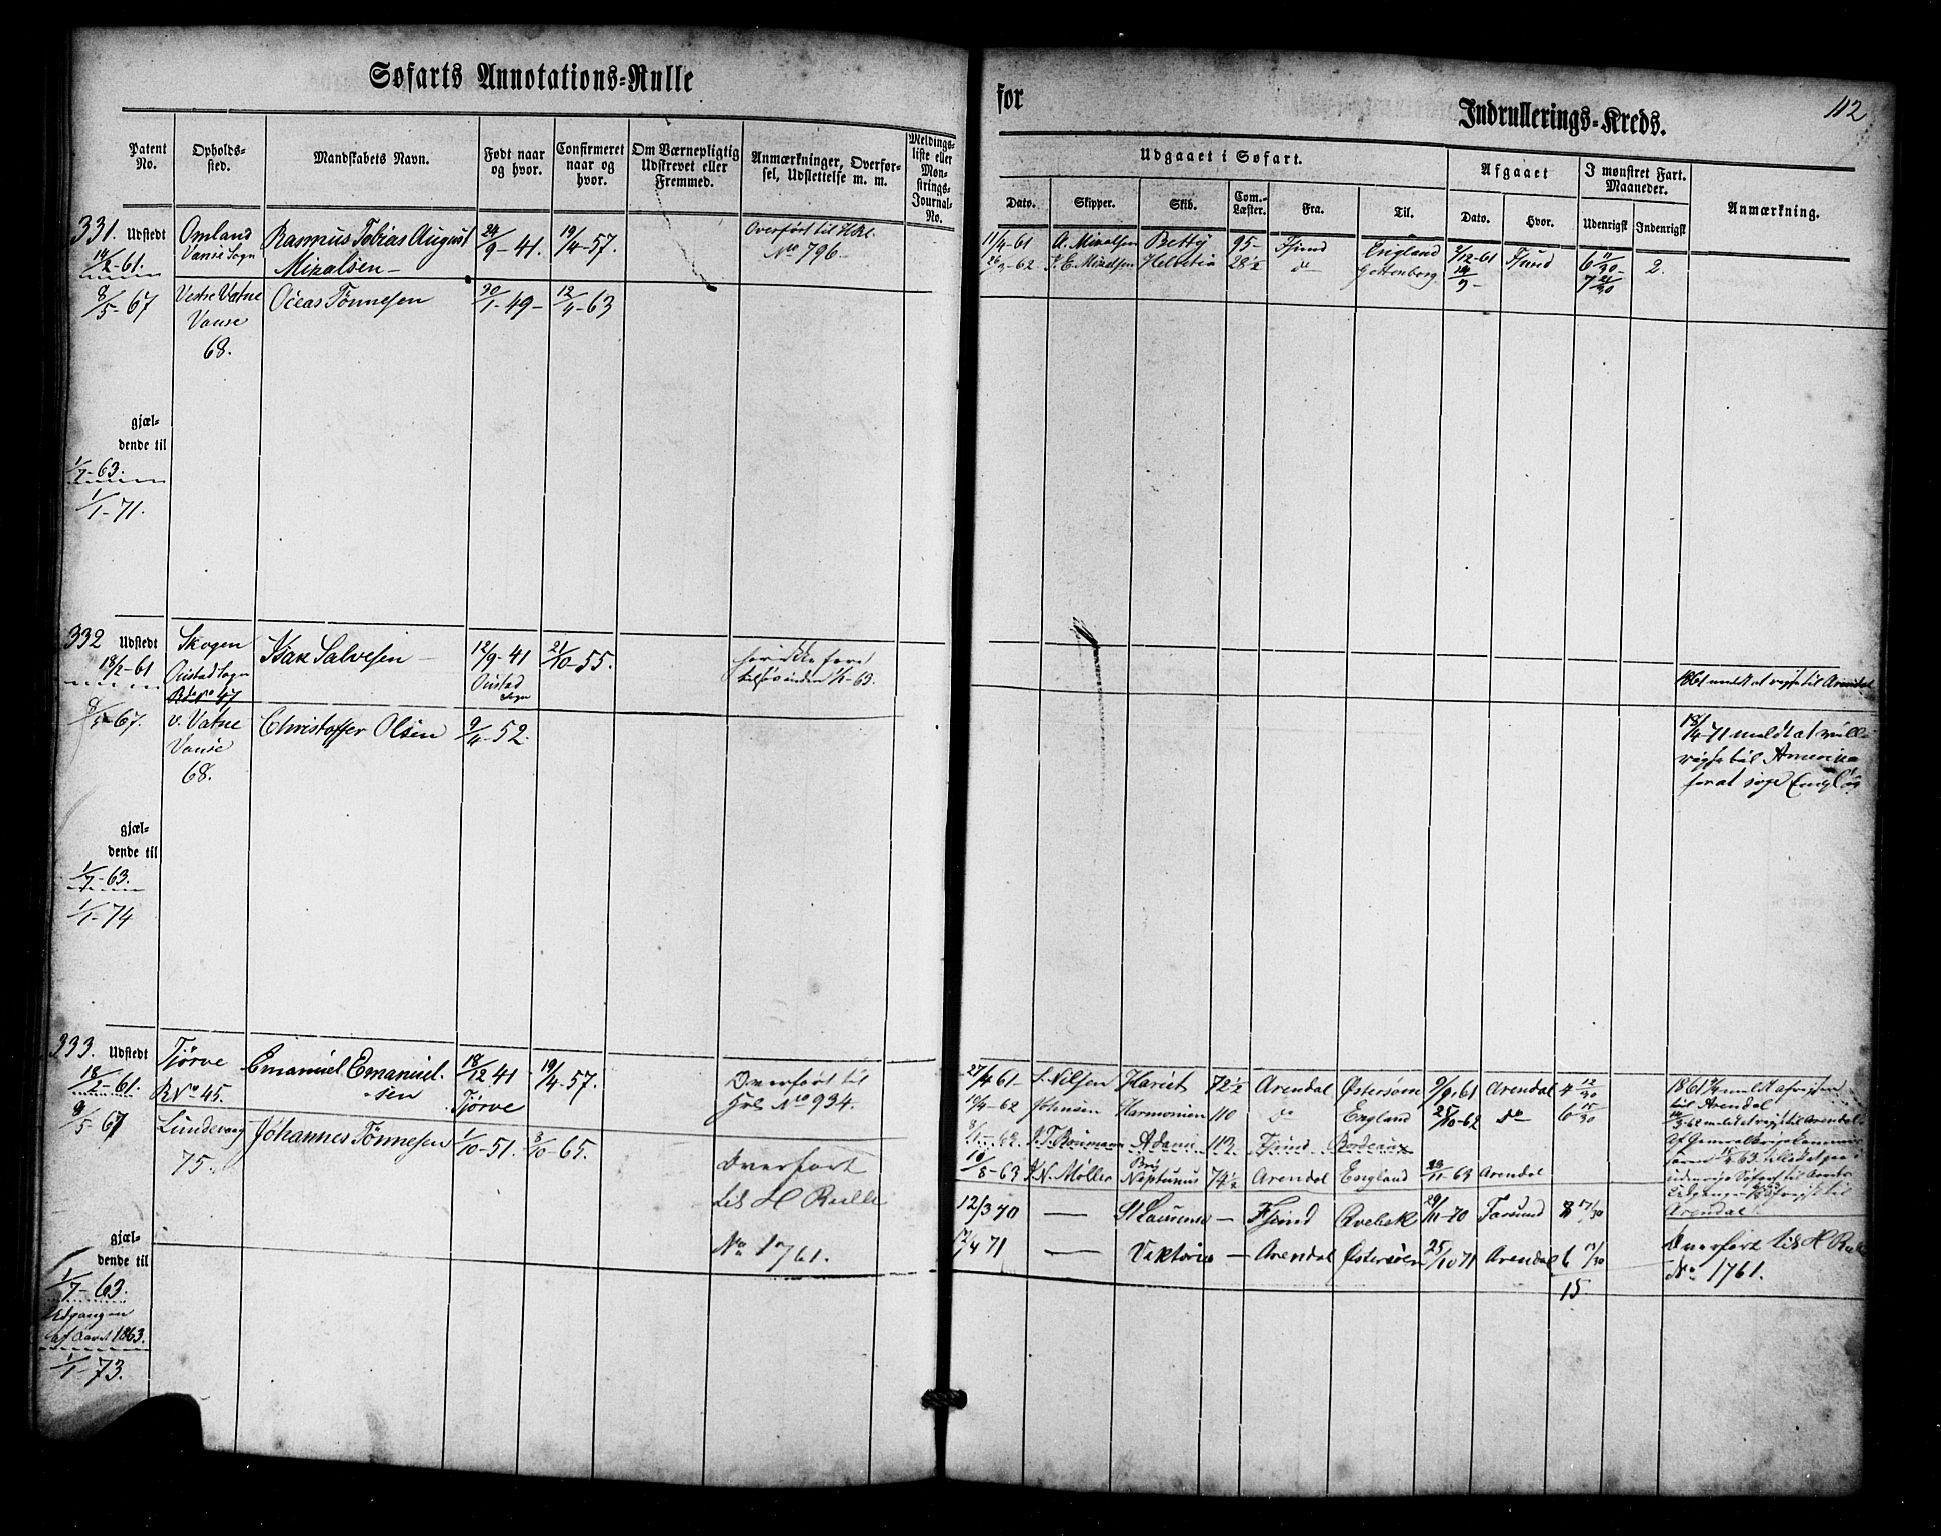 Søfarts Annotations-Rulle
for
Indrullerings-Kreds.
112
Patent No.
Opholds-sted.
Mandskabets Navn.
Født naar og hvor.
Confirmeret naar og hvor.
Om Værnepligtig Udskrevet eller Fremmed.
Anmærkninger, Overførsel, Udslettelse m. m.
Meldingsliste eller Mønstrings-Journal-No.
Udgaaet i Søfart.
Dato.
Skipper.
Skib.
Com.-Læster.
Fra.
Til.
Afgaaet
Dato.
Hvor.
I mønstret Fart. Maaneder.
Udenrigsk
Indenrigsk
Anmærkning.
331. Udstedt
Omland
Vanse Sogn
Rasmus Tobias August
Mikalsen
24/9-41.
19/4-57.
Overført til HRl.
No 796.
11/4-61 A. Mikalsen Betty 95- Fsund England 9/12-61 Fsund 6 11/30- 2.
-62 Helvetia 28½ do Gottenborg 7 21/30
8/5-67
Vestre Vatne
Vanse
68.
Oceas Tønnesen
30/1-49-
12/4-63
gjæl-
dende til
1/7-63.
1/1-71.
332 Udstedt
18/2-61
Skogen
Oustad Sogn
No 47
Isak Salvesen
12/9-41
Oustad
Sogn
21/10-55.
1861 meldt at rejse til Arendal
8/5-67.
v. Vatne
Vanse
68.
Christoffer Olsen
9/4-52.
18/4-71 meldt at ville
rejse til Amerika
for at søge
gjæl-
dende til
1/7-63.
1/1-74
333. Udstedt
18/2-61.
Tjørve
RNo 45.
Emanuel Emanuel-
sen
18/12 41
Tjørve
19/4-57.
Overført til
Hrl No 934.
27/4 61- S. Nilsen Hariet 72½ Arendal Østersøen 9/9-61 Arendal 4 12/30
-62 Johnsen Harmonien 110 do England 25/10-62 do 6 15/30
-62. Adonis 112 Fsund Bordeaux
10/8-63 Møller Brig Neptunus 74½ Arendal England 23/11-63 Arendal
til Arendal
Arendal
8/5 67
Lundevaag
75.
Johannes Tønnesen
1/10-51.
3/10-65.
Overført
til H Rulle
No 1761.
12/3 70 — — Fsund 29/11-70 Farsund 8 17/30
12/4 71 — Viktoria — Arendal Østersøen 25/10 71 Arendal 6 13/30
15
Overført til H Rulle
No 1761.
gjæl-
dende til
1/7-63.
Udgangen
af Aaret 1863.
1/1-73.